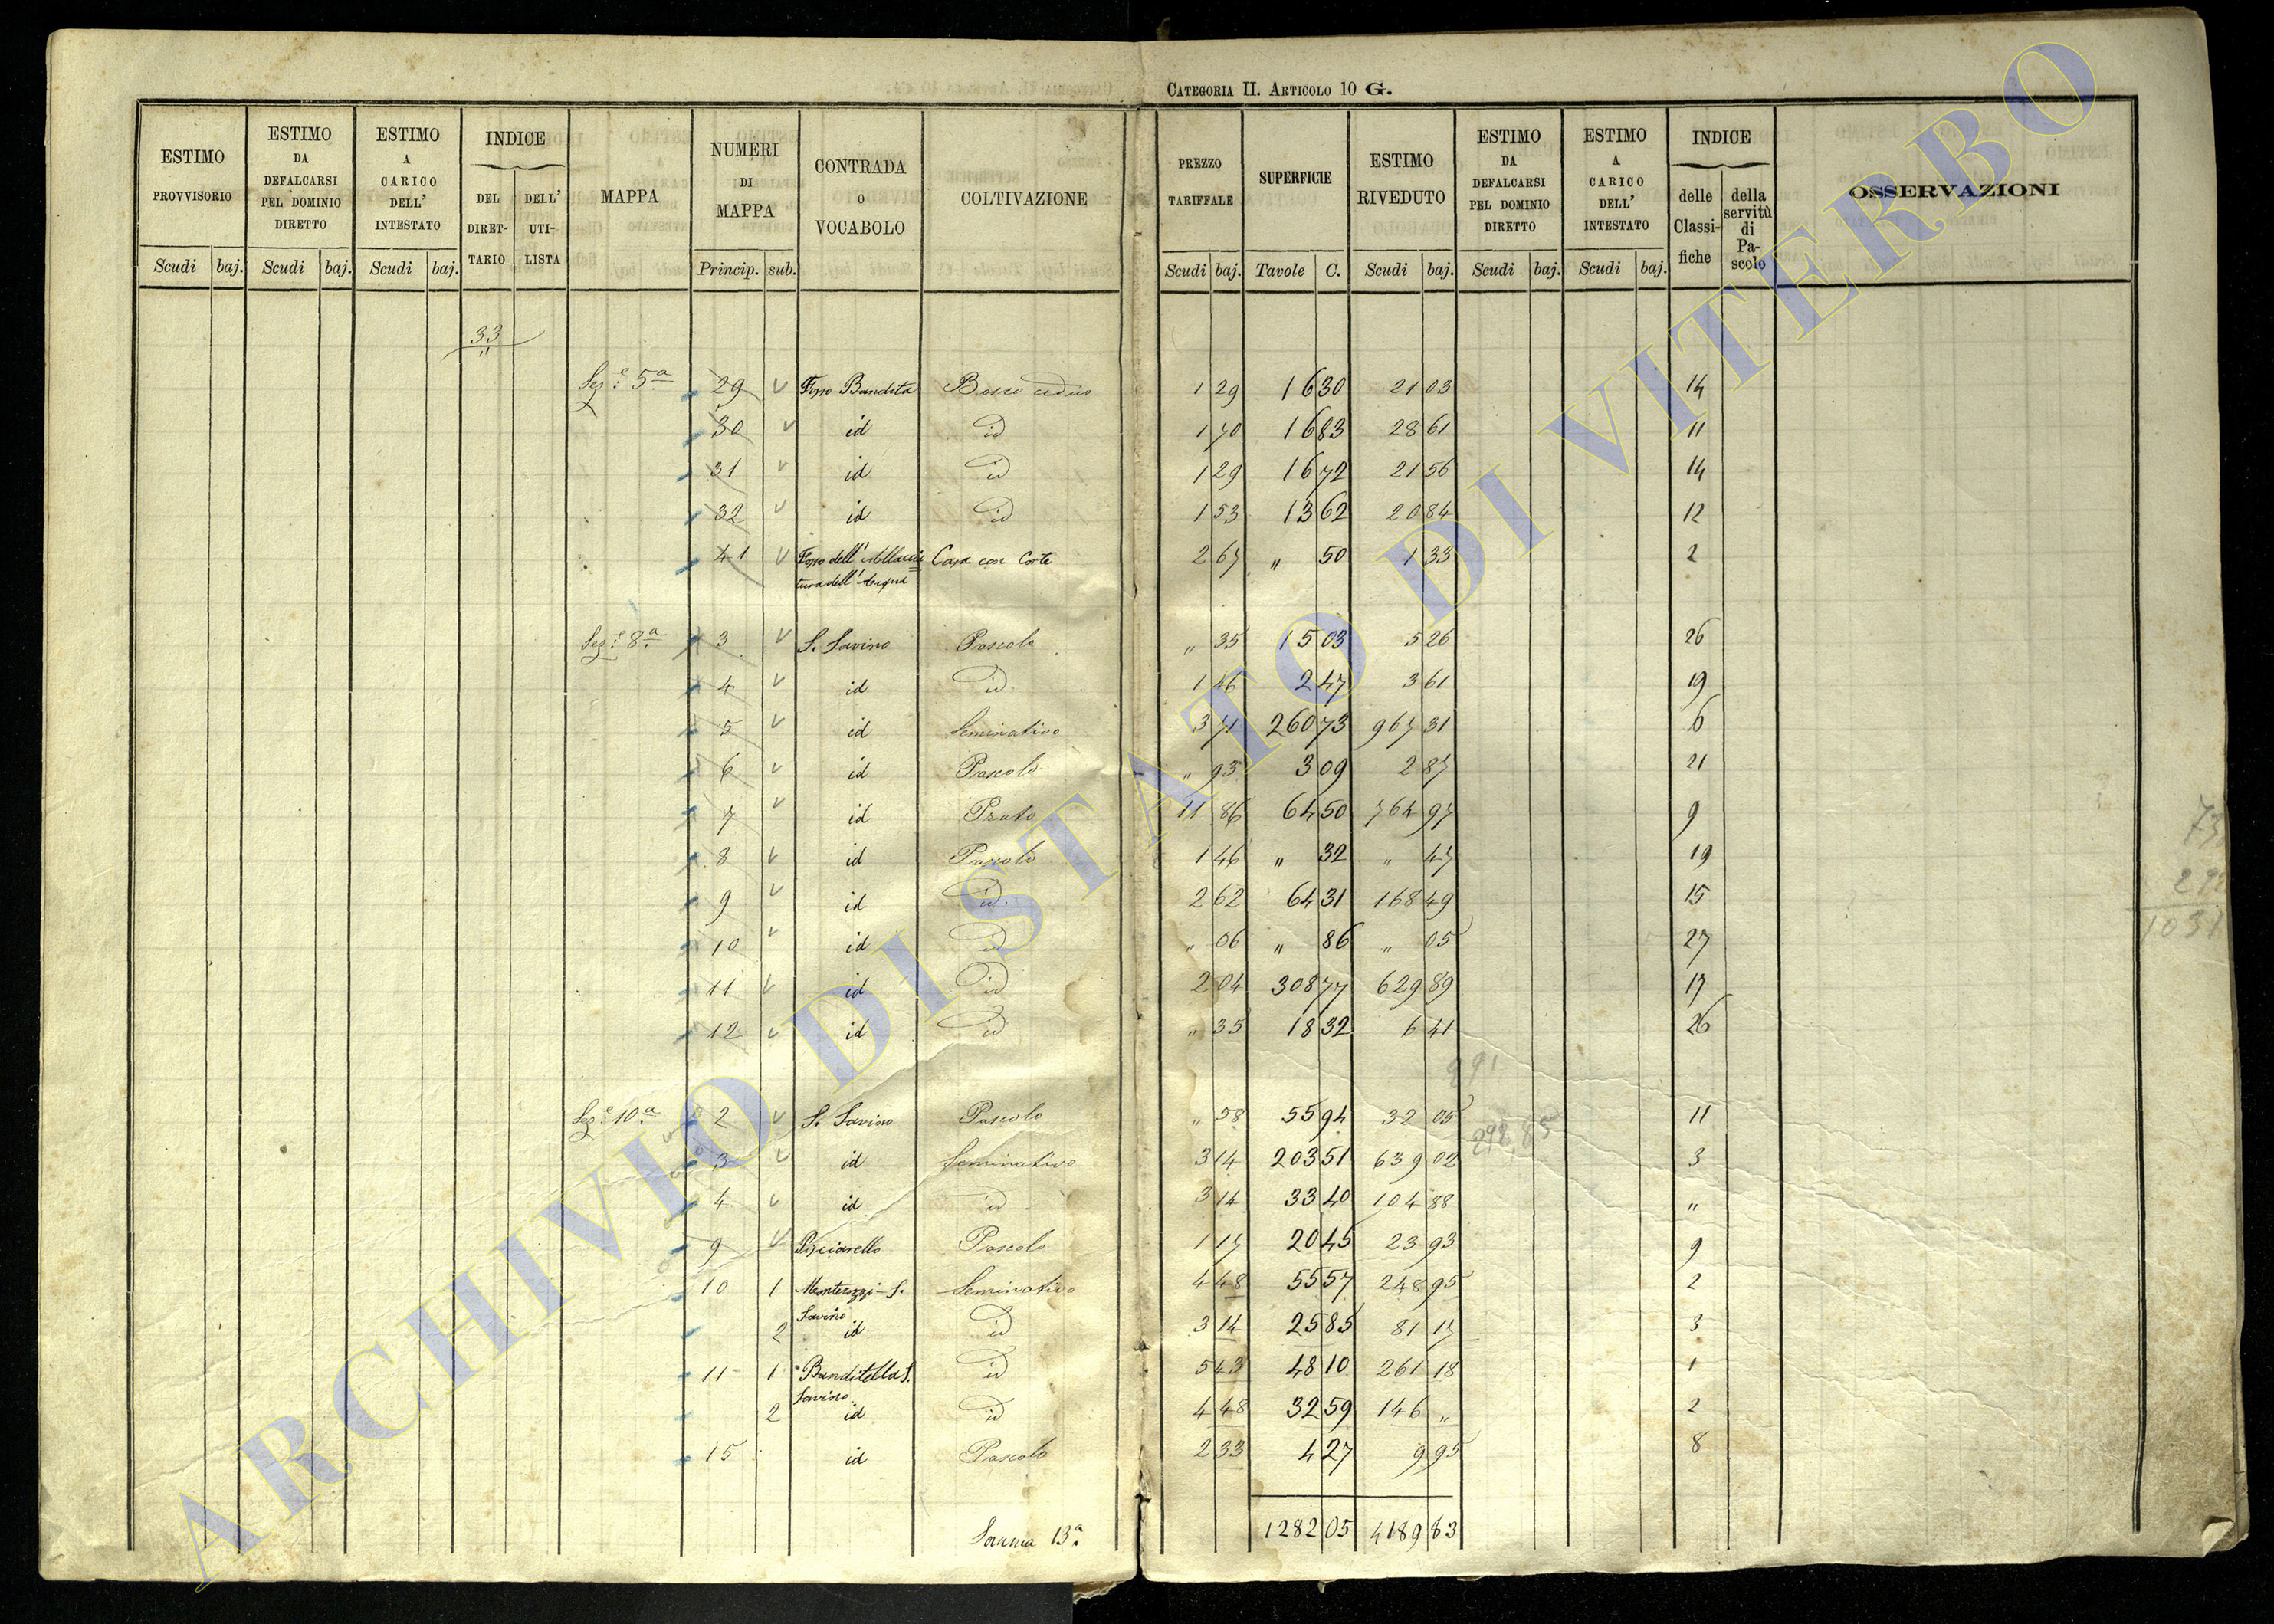 CATEGORIA II. ARTICOLO 10 G.
ESTIMO PROVVISORIO
ESTIMO DA DEFALCARSI PEL DOMINIO DIRETTO
ESTIMO A CARICO DELL' INTESTATO
INDICE
DEL DIRET-TARIO
DELL' UTI-LISTA
MAPPA
NUMERI DI MAPPA
CONTRADA o VOCABOLO
COLTIVAZIONE
PREZZO TARIFFALE
SUPERFICIE
ESTIMO RIVEDUTO
ESTIMO DA DEFALCARSI PEL DOMINIO DIRETTO
ESTIMO A CARICO DELL' INTESTATO
INDICE
delle Classi-fiche
della servitù di Pa-scolo
OSSERVAZIONI
Scudi baj. Scudi baj. Scudi baj. Princip. sub. Scudi baj. Tavole C. Scudi baj. Scudi baj. Scudi baj.
33
"
Sez.e 5a 29 Fosso Bandita Bosco ceduo 1 29 16 30 21 03 14
30 id id 1 70 16 83 28 61 11
31 id id 1 29 16 72 21 56 14
32 id id 1 53 13 62 20 84 12
41 Fosso dell' Allaccia Casa con Corte 2 67 " 50 1 33 2
tura dell' Acqua
Sez.e 8a 3 S. Savino Pascolo " 35 15 03 5 26 26
4 id id 1 46 2 47 3 61 19
5 id Seminativo 3 71 260 73 967 31 6
6 id Pascolo " 93 3 09 2 87 21
7 id Prato 11 86 64 50 764 97 9
8 id Pascolo 1 46 " 32 " 47 19
9 id id 2 62 64 31 168 49 15
10 id id " 06 " 86 " 05 27
11 id id 2 04 308 77 629 89 17
12 id id " 35 18 32 6 41 26
291
Sez.e 10a 2 S. Savino Pascolo " 58 55 94 32 05 11
292 85
3 id Seminativo 3 14 203 51 639 02 3
4 id id 3 14 33 40 104 88 "
9 Pisciarello Pascolo 1 17 20 45 23 93 9
10 1 Monterozzi-S. Seminativo 4 48 55 57 248 95 2
Savino
2 id id 3 14 25 85 81 17 3
11 1 Banditella S. id 5 43 48 10 261 18 1
Savino
2 id id 4 48 32 59 146 " 2
15 id Pascolo 2 33 4 27 9 95 8
Somma 13a 1282 05 4189 83
1031
ARCHIVIO DI STATO DI VITERBO